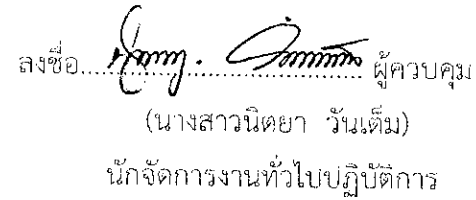 ลงชื่อ.................................... ผู้ควบคุม
(นางสาวนิตยา วันเต็ม)
นักจัดการงานทั่วไปปฏิบัติการ